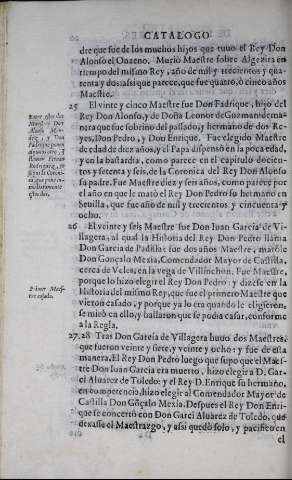 CATALOGO
dre que fue de los muchos hijos que tuuo el Rey Don
Alonso el Onzeno. Murio Maestre sobre Algezira en
tiempo del mismo Rey, año de mil y trecientos y qua-
renta y dos: assi que parece, que fue quatro, ò cinco años
Maestre.
25 El veinte y cinco Maestre fue Don Fadrique, hijo del
Rey Don Alonso, y de Doña Leonor de Guzman: de ma-
nera que fue sobrino del passado, y hermano de dos Re-
yes, Don Pedro, y Don Enrique. Fue elegido Maestre
de edad de diez años, y el Papa dispensò en la poca edad,
y en la bastardia, como parece en el capitulo docien-
tos y setenta y seis, de la Coronica del Rey Don Alonso
su padre. Fue Maestre diez y seis años, como parece por
el año en que le matò el Rey Don Pedro su hermano en
Seuilla, que fue año de mil y trecientos y cincuenta y
ocho.
26 El veinte y seis Maestre fue Don Iuan Garcia de Vi-
llagera, al qual la Historia del Rey Don Pedro llama
Don Garcia de Padilla: fue dos años Maestre, matòle
Don Gonçalo Mexia, Comendador Mayor de Castilla,
cerca de Veles, en la vega de Villinchon. Fue Maestre,
porque lo hizo elegir el Rey Don Pedro: y dizese en la
Historia del mismo Rey, que fue el primero Maestre que
vieron casado, y porque ya lo era quando le eligieron,
se mirò en ello, y hallaron que se podia casar, conforme
a la Regla.
Primer Maes-
tre casado.
27.28 Tras Don Garcia de Villagera huuo dos Maestres,
que fueron veinte y siete, y veinte y ocho: y fue de esta
manera. El Rey Don Pedro luego que supo que el Maes-
tre Don Iuan Garcia era muerto, hizo elegir a D. Gar-
ci Aluarez de Toledo: y el Rey D. Enrique su hermano,
en competencia, hizo elegir al Comendador Mayor de
Castilla Don Gõçalo Mexia. Despues el Rey Don Enri-
que se concertò con Don Garci Aluarez de Toledo, que
dexasse el Maestrazgo, y assi quedò solo, y pacifico en
el